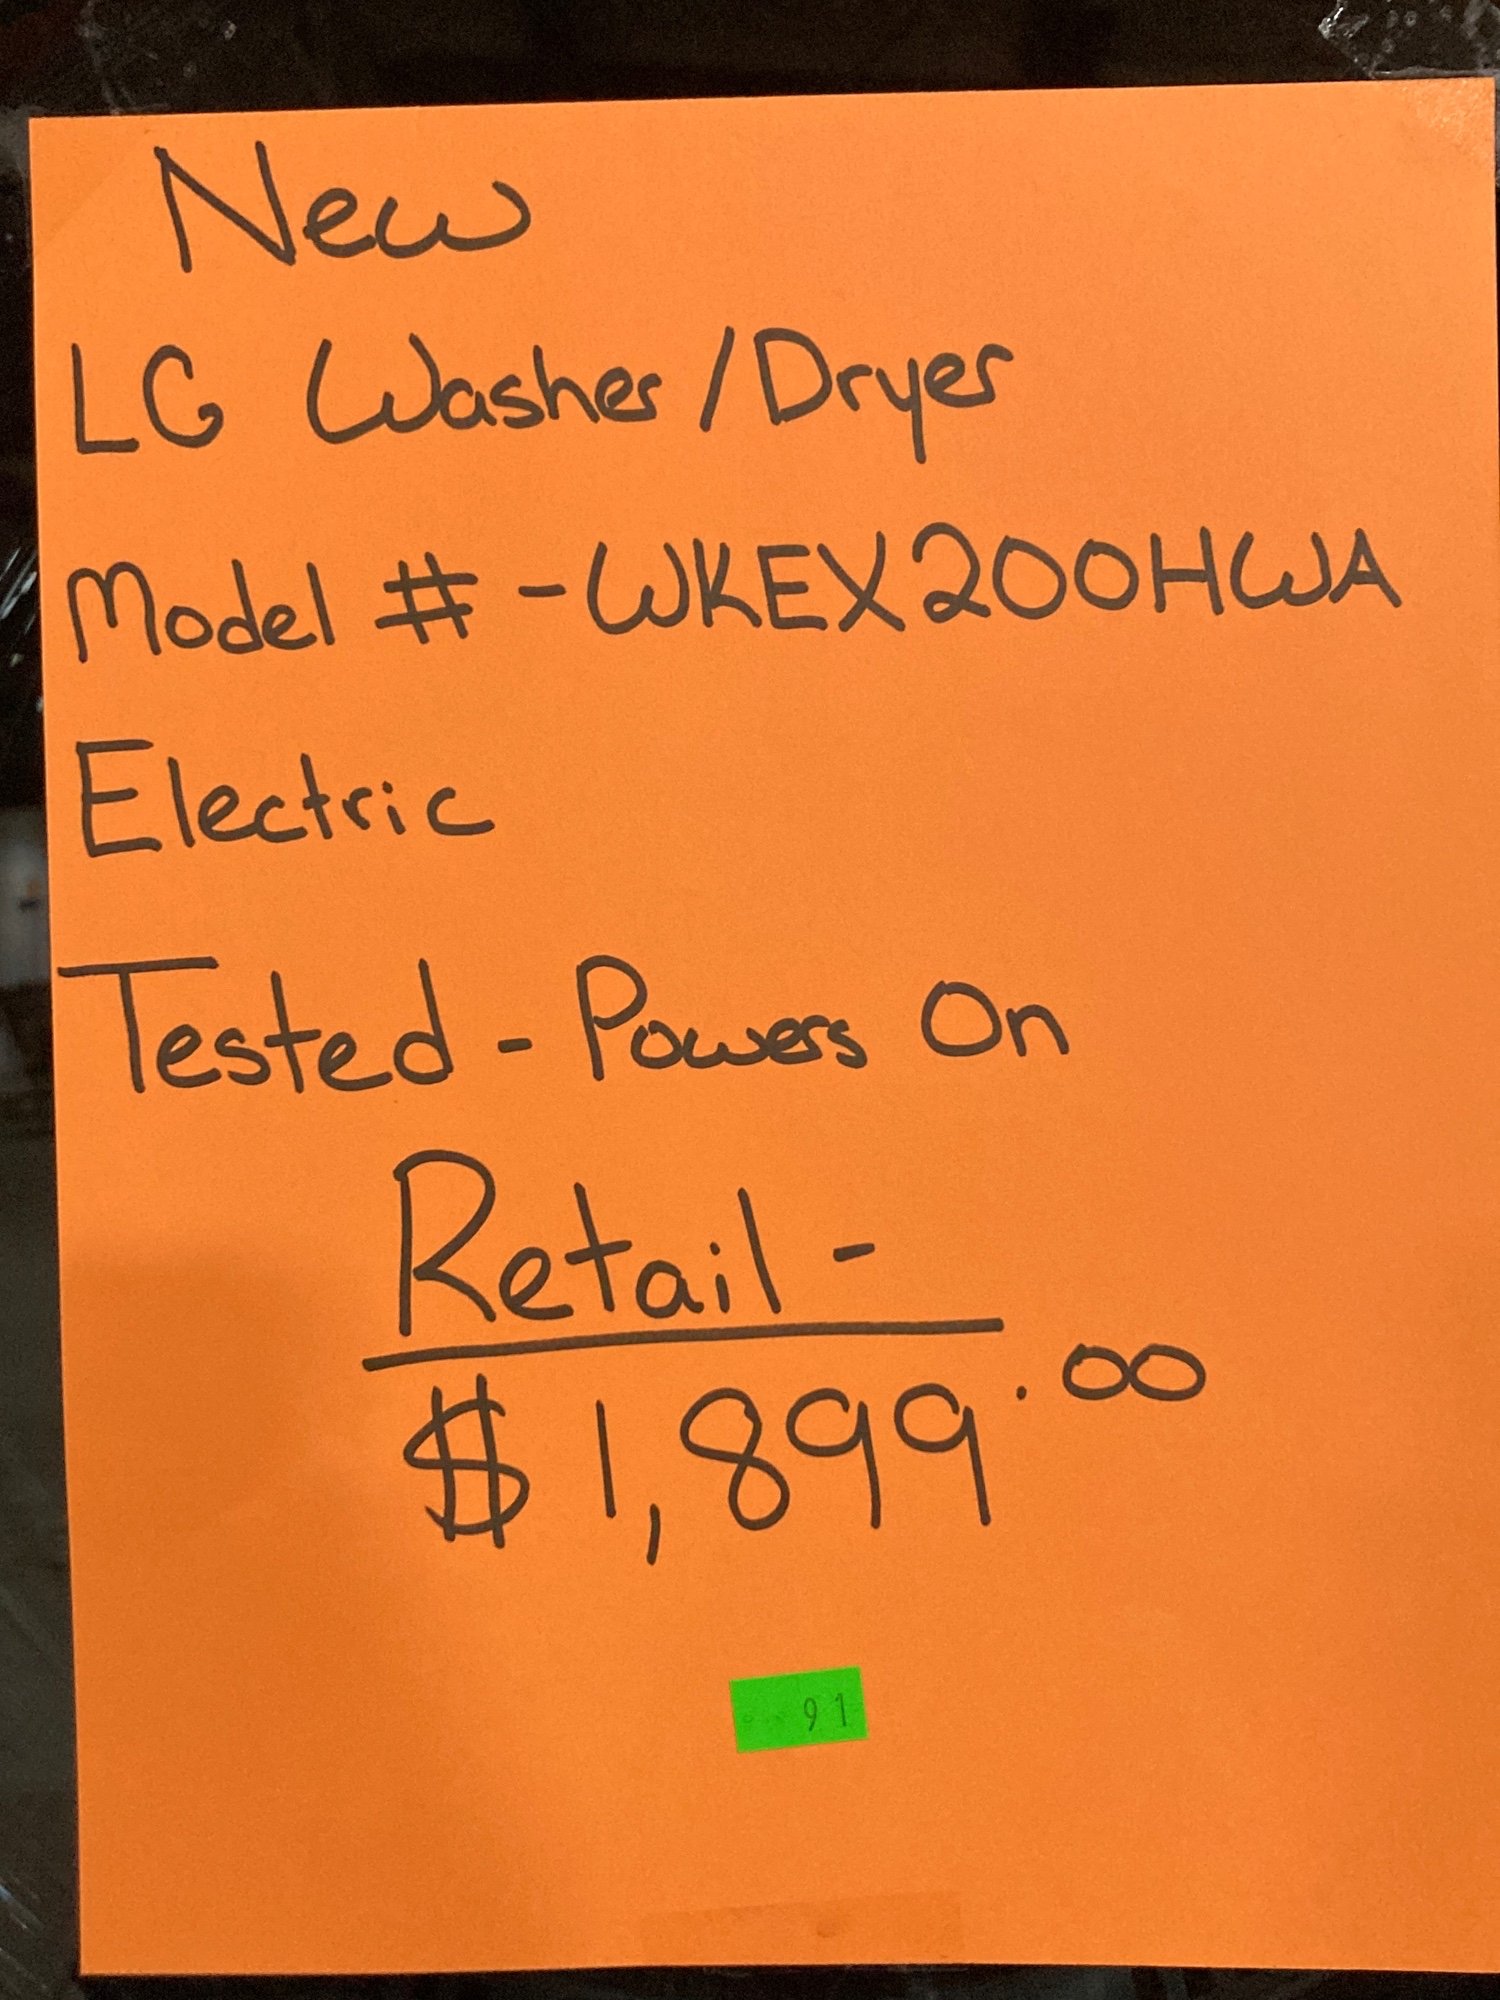 New
LG Washer/Dryer
Model # - WKEX200HWA
Electric
Tested - Powers On
Retail -
$1,899.00
91